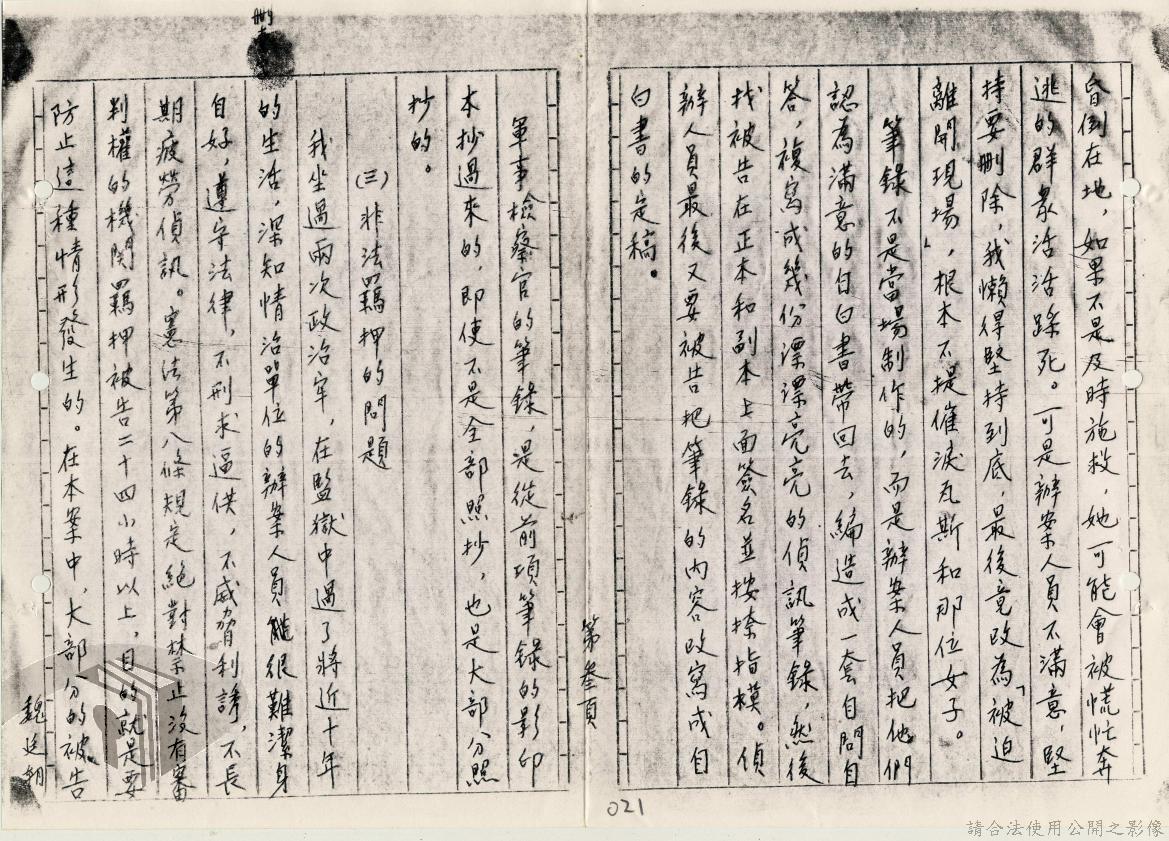 昏倒在地，如果不是及時施救，她可能會被慌忙奔
逃的群衆活活踩死。可是辦案人員不滿意，堅
持要刪除，我懶得堅持到底，最後竟改為「被迫
離開現場」，根本不提催淚瓦斯和那位女子。
筆錄不是當場制作的，而是辦案人員把他們
認為滿意的自白書帶回去，編造成一套自問自
答，複寫成幾份漂漂亮亮的偵訊筆錄，然後
找被告在正本和副本上面簽名並按捺指模。偵
辦人員最後又要被告把筆錄的內容改寫成自
白書的定稿。
第叁頁
軍事檢察官的筆錄，是從前項筆錄的影印
本抄過來的，即使不是全部照抄，也是大部分照
抄的。
(三)非法羈押的問題
我坐過兩次政治牢，在監獄中過了將近十年
的生活，深知情治單位的辦案人員很難潔身
自好，遵守法律，不刑求逼供，不威脅利誘，不長
期疲勞偵訊。憲法第八條規定絕對禁止沒有審
判權的機関羈押被告二十四小時以上，目的就是要
防止這種情形發生的。在本案中，大部分的被告
魏廷朝
021
請合法使用公開之影像